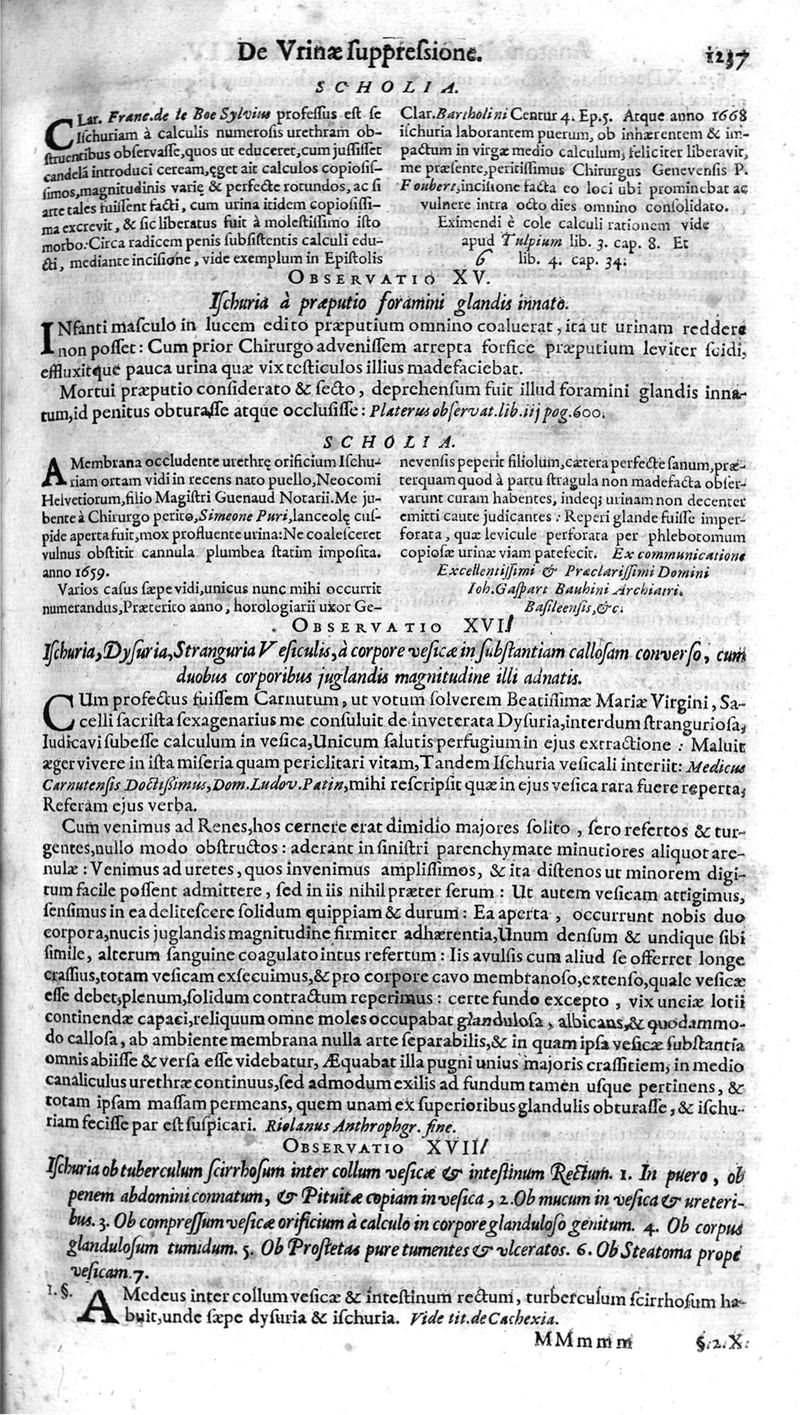 De Vrinæ ſuppreſſione.
1237
SCHOLIA.
CLar. Franc. de le Boe Sylvius profeſſus eſt ſe
Iſchuriam à calculis numeroſis urethram ob-
ſtruentibus obſervaſſe, quos ut educeret, cum juſſiſſet
candelã introduci ceream, ęget ait calculos copioſiſ-
ſimos, magnitudinis varię & perfecte rotundos, ac ſi
arte tales fuiſſent facti, cum urina itidem copioſiſſi-
ma excrevit, & ſic liberatus fuit à moleſtiſſimo iſto
morbo. Circa radicem penis ſubſiſtentis calculi edu-
cti, mediante inciſione, vide exemplum in Epiſtolis
Clar. Bartholini Centur 4. Ep. 5. Atque anno 1668
iſchuria laborantem puerum, ob inhærentem & im-
pactum in virgæ medio calculum, feliciter liberavit,
me præſente, peritiſſimus Chirurgus Genevenſis P.
Foubert, inciſione facta eo loci ubi prominebat ac
vulnere intra octo dies omnino conſolidato.
Eximendi è cole calculi rationem vide
apud Tulpium lib. 3. cap. 8. Et
6 lib. 4. cap. 34.
OBSERVATIO XV.
Iſchuria à præputio foramini glandis innato.
INfanti maſculo in lucem edito præputium omnino coaluerat, ita ut urinam reddere
non poſſet: Cum prior Chirurgo adveniſſem arrepta forfice præputium leviter ſcidi,
effluxitque pauca urina quæ vix teſticulos illius madefaciebat.
Mortui præputio conſiderato & ſecto, deprehenſum fuit illud foramini glandis inna-
tum, id penitus obturaſſe atque occluſiſſe: Platerus obſervat. lib. iij pog. 600.
SCHOLIA.
A Membrana occludente urethrę orificium Iſchu-
riam ortam vidi in recens nato puello, Neocomi
Helvetiorum, filio Magiſtri Guenaud Notarii. Me ju-
bente à Chirurgo perito, Simeone Puri, lanceolę cuſ-
pide aperta fuit, mox profluente urina: Ne coaleſceret
vulnus obſtitit cannula plumbea ſtatim impoſita.
anno 1659.
Varios caſus ſæpe vidi, unicus nunc mihi occurrit
numerandus, Præterito anno, horologiarii uxor Ge-
nevenſis peperit filiolum, cætera perfecte ſanum, præ-
terquam quod à partu ſtragula non madefacta obſer-
varunt curam habentes, indeq; urinam non decenter
emitti caute judicantes: Reperi glande fuiſſe imper-
forata, quæ levicule perforata per phlebotomum
copioſæ urinæ viam patefecit. Ex communicatione
Excellentiſſimi & Præclariſſimi Domini
Ioh. Gaſpart Bauhini Archiatri.
Baſileenſis, &c.
OBSERVATIO XVI.
Iſchuria, Dyſuria, Stranguria Veſiculis, à corpore veſicæ in ſubſtantiam calloſam converſo, cum
duobus corporibus juglandis magnitudine illi adnatis.
CUm profectus fuiſſem Carnutum, ut votum ſolverem Beatiſſimæ Mariæ Virgini, Sa-
celli ſacriſta ſexagenarius me conſuluit de inveterata Dyſuria, interdum ſtrangurioſa,
Iudicavi ſubeſſe calculum in veſica, Unicum ſalutis perfugium in ejus extractione: Maluit
æger vivere in iſta miſeria quam periclitari vitam, Tandem Iſchuria veſicali interiit: Medicus
Carnutenſis Doctiſſimus, Dom. Ludov. Patin, mihi reſcripſit quæ in ejus veſica rara fuere reperta,
Referam ejus verba.
Cum venimus ad Renes, hos cernere erat dimidio majores ſolito, ſero refertos & tur-
gentes, nullo modo obſtructos: aderant in ſiniſtri parenchymate minutiores aliquot are-
nulæ: Venimus ad uretes, quos invenimus ampliſſimos, & ita diſtenos ut minorem digi-
tum facile poſſent admittere, ſed in iis nihil præter ſerum: Ut autem veſicam attigimus,
ſenſimus in ea deliteſcere ſolidum quippiam & durum: Ea aperta, occurrunt nobis duo
corpora, nucis juglandis magnitudine firmiter adhærentia, Unum denſum & undique ſibi
ſimile, alterum ſanguine coagulato intus refertum: Iis avulſis cum aliud ſe offerret longe
craſſius, totam veſicam exſecuimus, & pro corpore cavo membranoſo, extenſo, quale veſicæ
eſſe debet, plenum, ſolidum contractum reperimus: certe fundo excepto, vix unciæ lotii
continendæ capaci, reliquum omne moles occupabat glanduloſa, albicans, & quodammo-
do calloſa, ab ambiente membrana nulla arte ſeparabilis, & in quam ipſa veſicæ ſubſtantia
omnis abiiſſe & verſa eſſe videbatur, Æquabat illa pugni unius majoris craſſitiem, in medio
canaliculus urethræ continuus, ſed admodum exilis ad fundum tamen uſque pertinens, &
totam ipſam maſſam permeans, quem unam ex ſuperioribus glandulis obturaſſe, & iſchu-
riam feciſſe par eſt ſuſpicari. Riolanus Anthrophgr. fine.
OBSERVATIO XVII.
Iſchuria ob tuberculum ſcirrhoſum inter collum veſicæ & inteſtinum Rectum. 1. In puero, ob
penem abdomini connatum, & Pituitæ copiam in veſica, 2. Ob mucum in veſica & ureteri-
bus. 3. Ob compreſſum veſicæ orificium à calculo in corpore glanduloſo genitum. 4. Ob corpus
glanduloſum tumidum. 5. Ob Proſtetas pure tumentes & vlceratos. 6. Ob Steatoma prope
veſicam. 7.
1. §. AMedeus inter collum veſicæ & inteſtinum rectum, turberculum ſcirrhoſum ha-
buit, unde ſæpe dyſuria & iſchuria. Vide tit. de Cachexia.
MMmmm
§. 2. X.